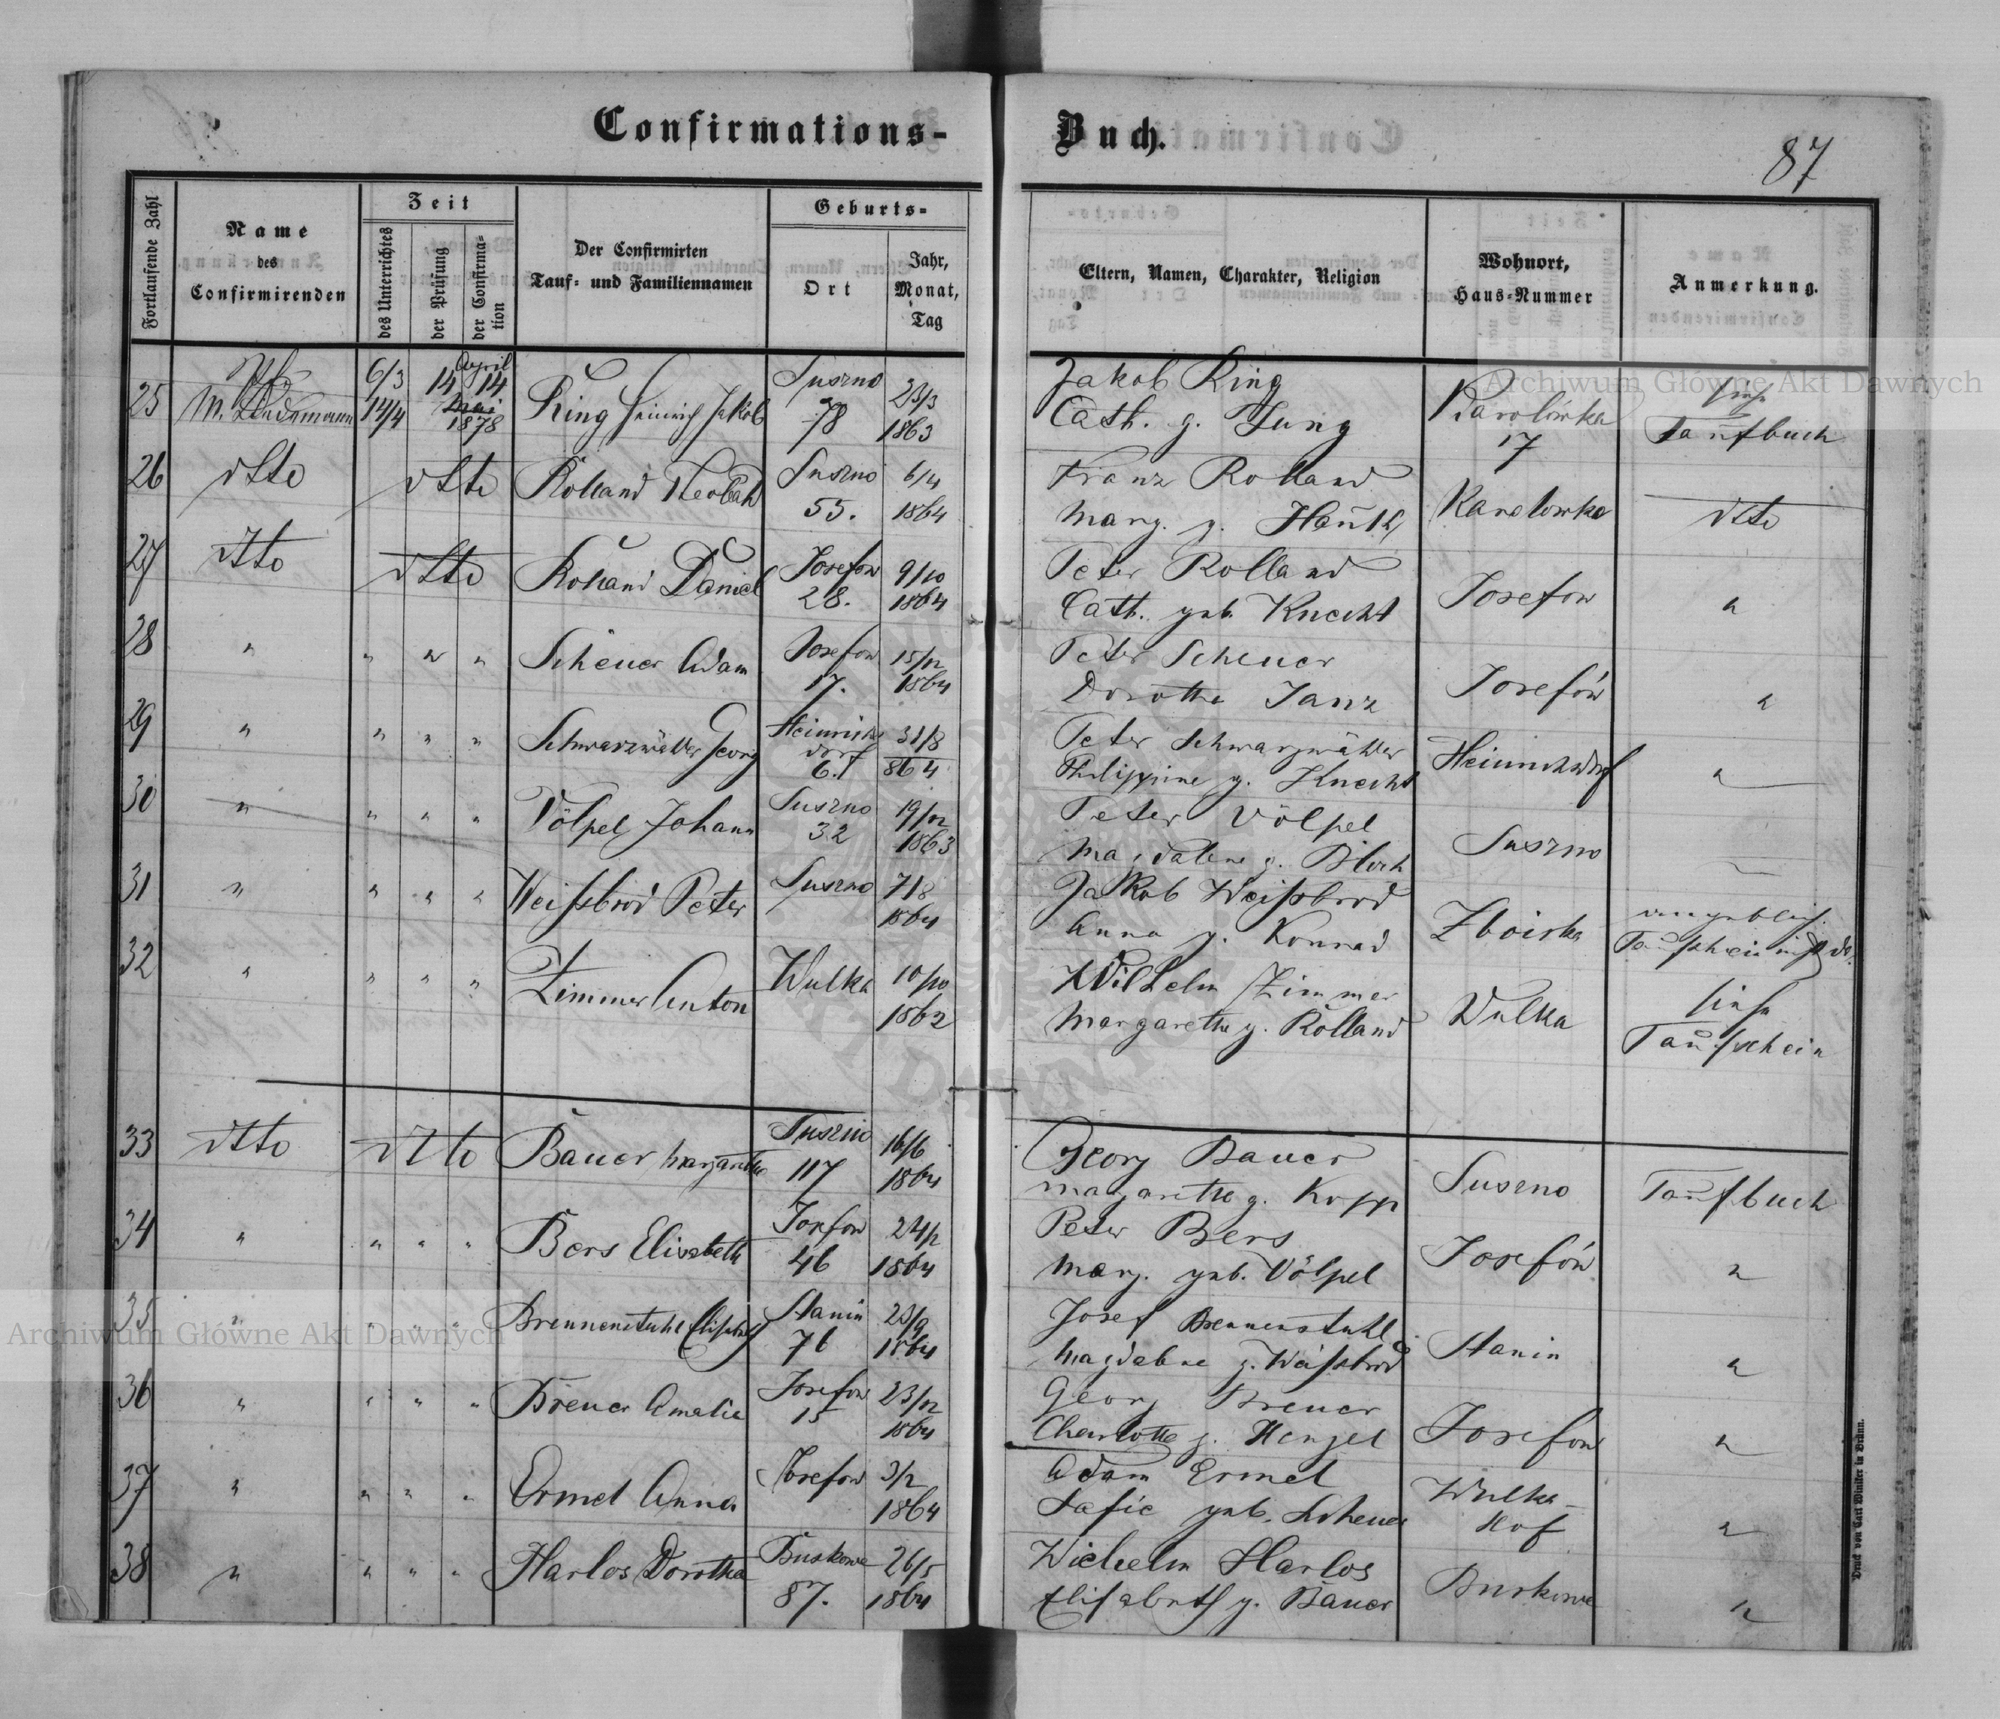 Confirmations-
Buch.
87
Fortlaufende Zahl
Name
des
Confirmirenden
Zeit
des Unterrichtes
der Prüfung
der Confirma-
tion
Der Confirmirten
Tauf- und Familiennamen
Geburts-
Ort
Jahr,
Monat,
Tag
Eltern, Namen, Charakter, Religion
Wohnort,
Haus-Nummer
Anmerkung.
25
6/3
14/4
14
April
14
Mai
1878
Ring Heinrich Jakob
Suszno
78
23/3
1863
Jakob Ring
Cath. g. Jung
Karolówka
17
siehe
Taufbuch
26 dtto dtto Rolland Theobald
Suszno
55.
6/4
1864
Franz Rolland
Marg. g. Hauth
Karolowka
dtto
27 dtto dtto Rolland Daniel
Josefow
28.
9/10
1864
Peter Rolland
Cath. geb. Knecht
Josefow
"
28 " " " " Scheuer Adam
Josefow
17.
15/12
1864
Peter Scheuer
Dorothe Janz
Josefów
"
29 " " " " Schwarzwälder Georg
Heinrichs
dorf
6.
31/8
864
Peter Schwarzwälder
Philippine g. Knecht
Heinrichsdorf
"
30 " " " " Völpel Johann
Suszno
32
19/12
1863
Peter Völpel
Magdalena g. Bloch
Suszno
31 " " " " Weissbrod Peter
Suszno
7/8
1864
Jakob Weissbrod
Anna g. Konrad
Zboiska
angeblich.
Taufschein
32 " " " " Zimmer Anton
Wulka
10/10
1862
Wilhelm Zimmer
Margarethe g. Rolland
Wulka
siehe
Taufschein
33 dtto dtto Bauer Margaretha
Suszno
117
16/6
1864
Georg Bauer
Margarethe g. Kopp
Suszno
Taufbuch
34 " " " " Bers Elisabeth
Josefow
46
1864
Peter Bers
Marg. geb. Völpel
Josefów
"
35 " " " " Brennenstuhl Elisabeth
Stanin
76
23/9
1864
Josef Brennenstuhl
Magdalene g. Weissbrod
Stanin
"
36 " " " " Breuer Amalie
Josefow
15
23/12
1864
Georg Breuer
Charlotte g. Henzel
Josefow
"
37 " " " " Ermel Anna
Josefow
3/2
1864
Adam Ermel
Safie geb. Scheuer
Wulka-
Hof
"
38 " " " " Harlos Dorothea
Buskowe
87.
26/5
1864
Wilhelm Harlos
Elisabeth g. Bauer
Buskowe
"
Druck von Carl Winiker in Brünn.
Archiwum Główne Akt Dawnych
Archiwum Główne Akt Dawnych